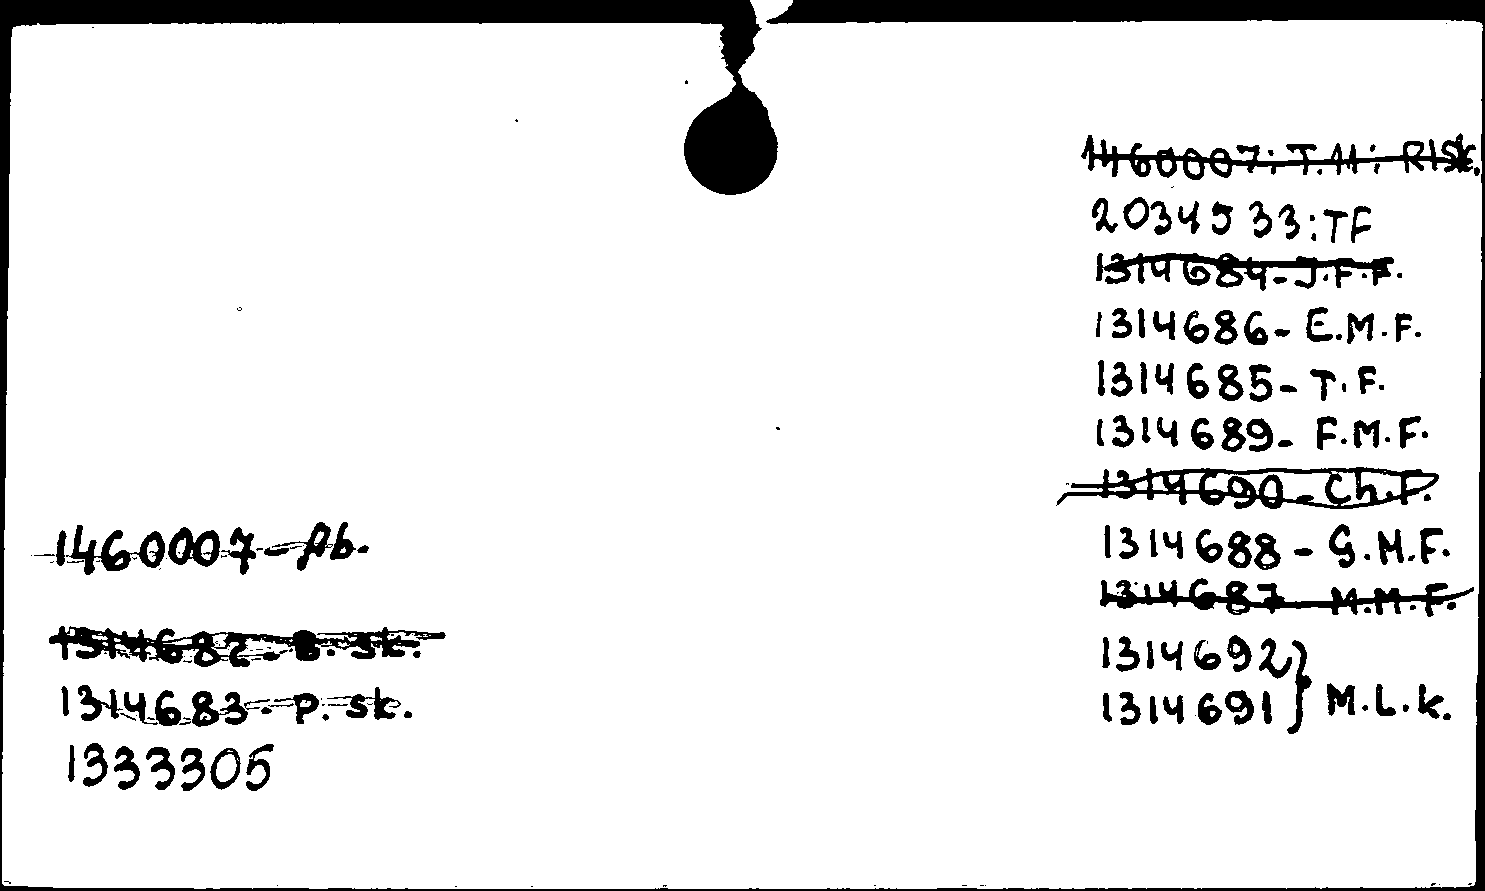 1460007; T.M; Risk.
2034533: TF
1314684- J.F.F.
1314686- E.M.F.
1314685- T.F.
1314689- F.M.F.
1314690- Ch.F.
1314688 - G.M.F.
1314687 M.M.F.
1314692 }
1314691 } M.L.K.
1460007- Ab.
1314682- B. sk.
1314683- P. sk.
1333305